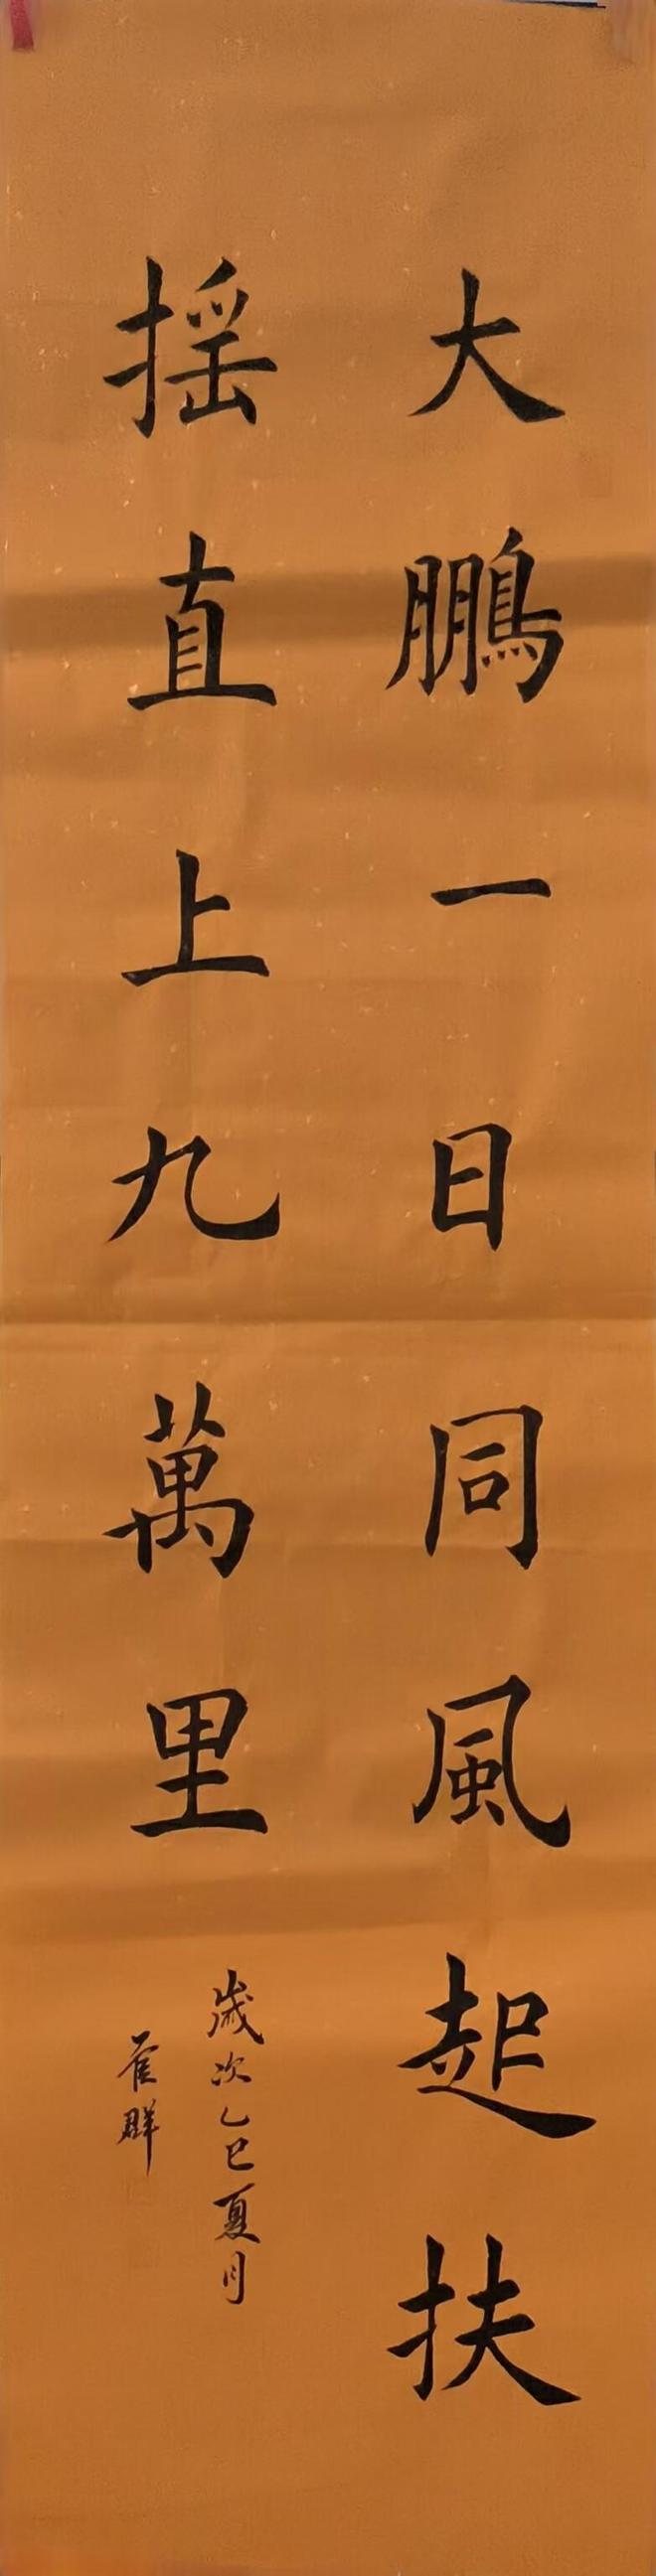 大鵬一日同風起扶
揺直上九萬里
歲次乙巳夏月
崔群